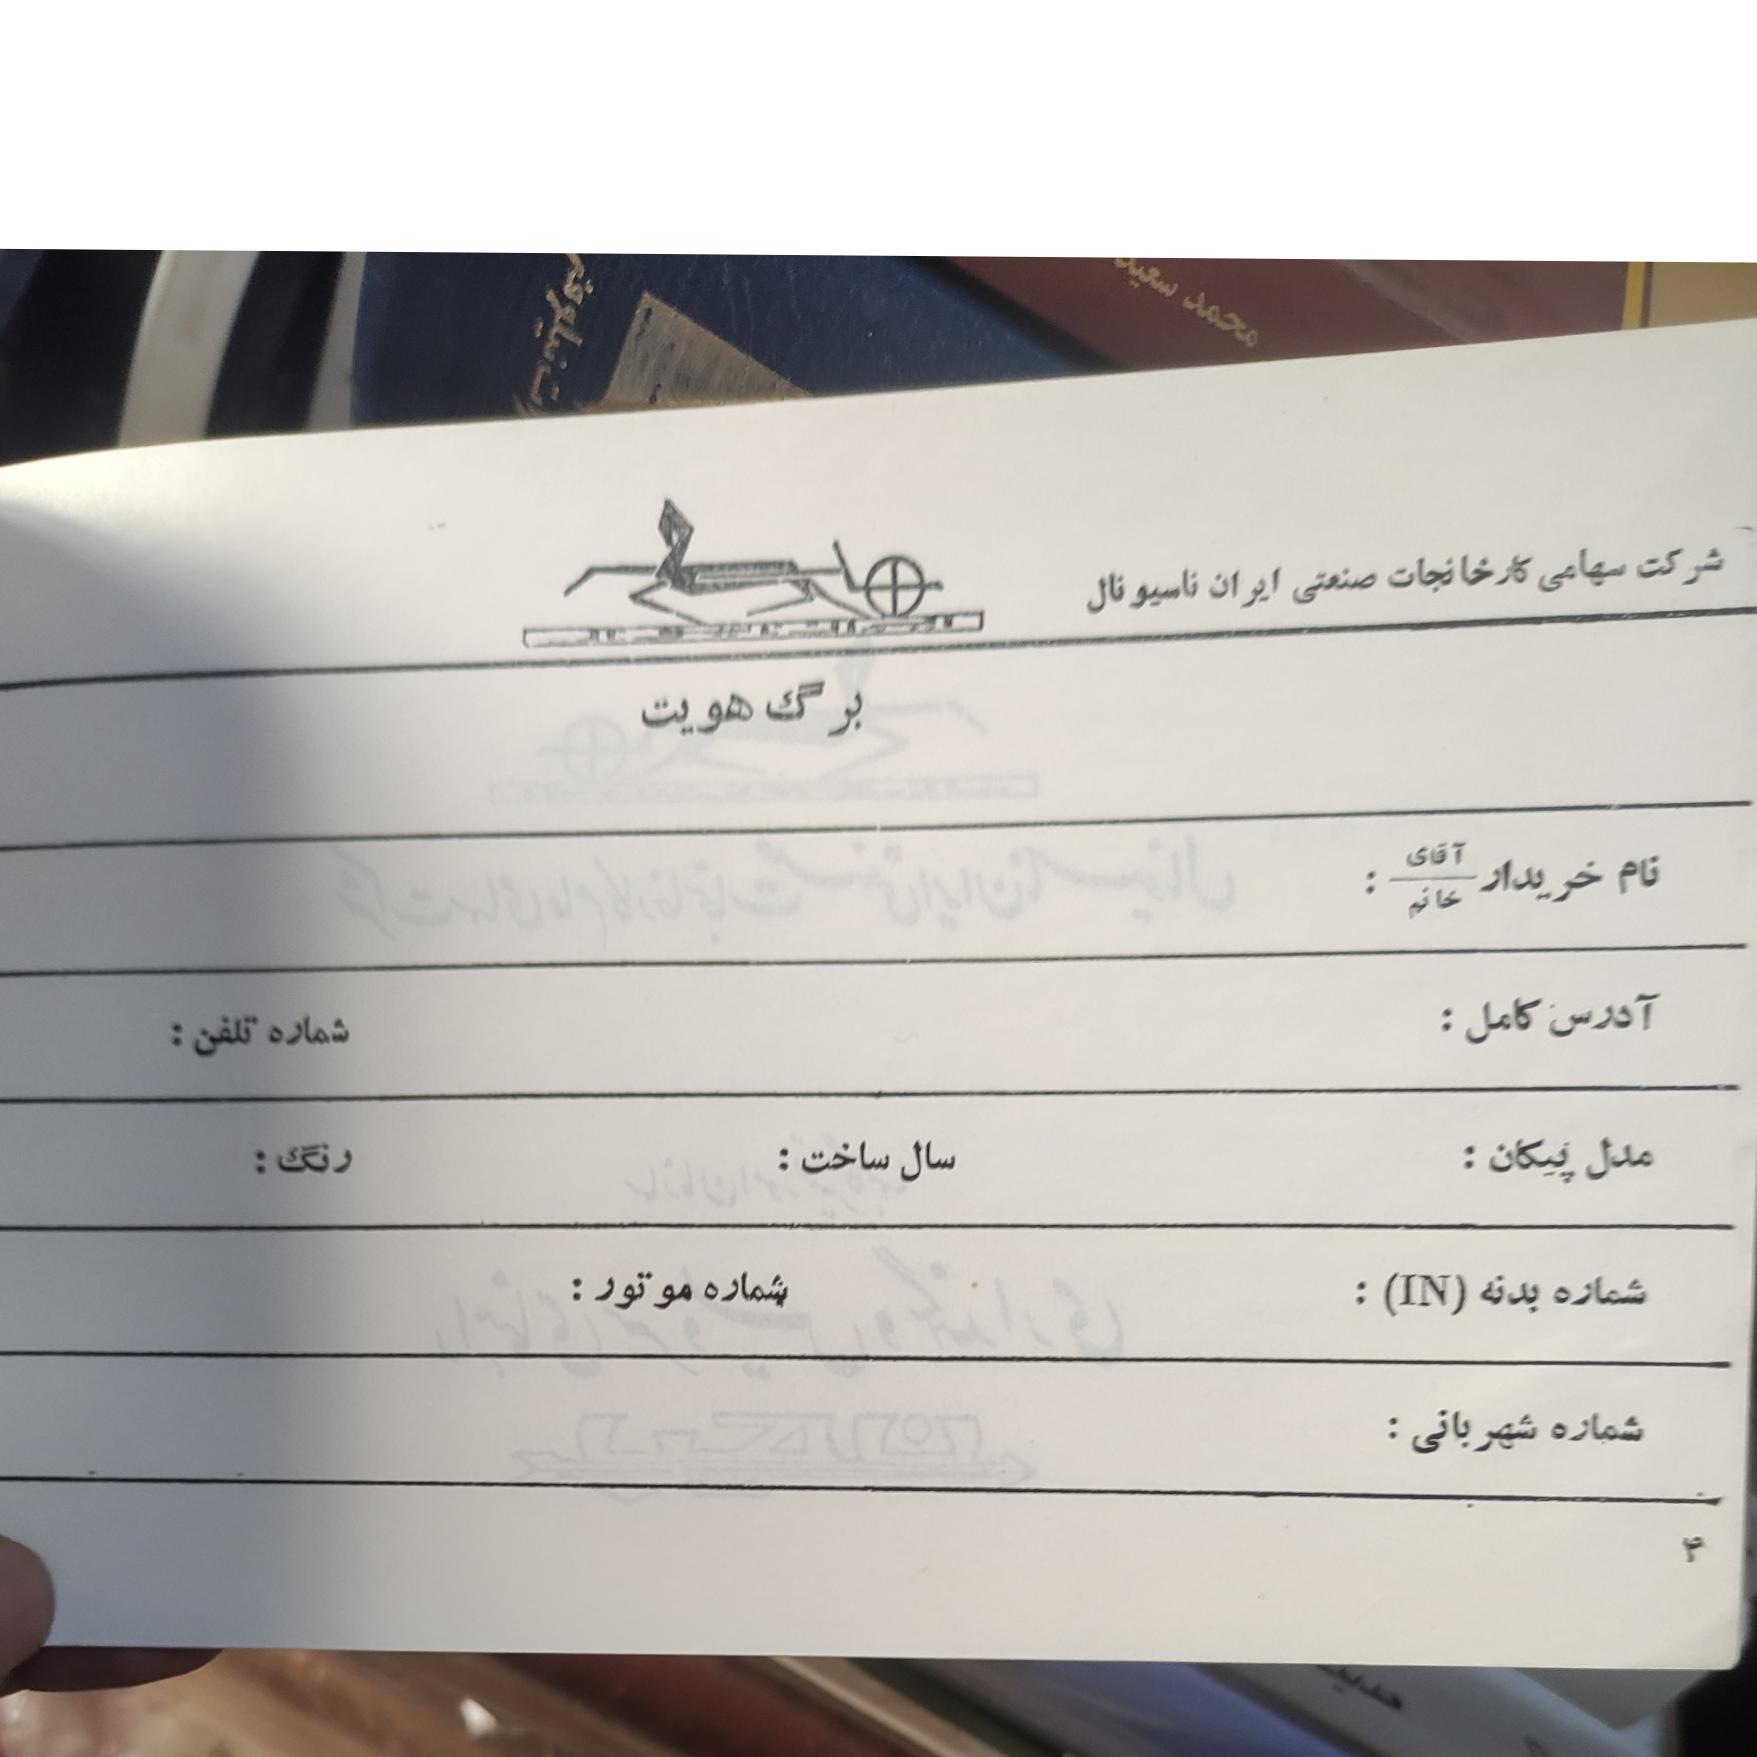 محمد سعید
شرکت سهامی کارخانجات صنعتی ایران ناسیونال
برگ هویت
نام خریدار آقای / خانم :
آدرس کامل : شماره تلفن :
مدل پیکان : سال ساخت : رنگ :
شماره بدنه (IN) : شماره موتور :
شماره شهربانی :
۴